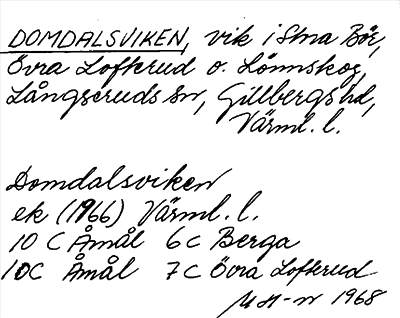 DOMDALSVIKEN, vik i Stra Bör,
Övra Lofterud o. Lönnskog,
Långseruds sn, Gillbergs hd,
Värml. l.
Domdalsviken
ek (1966) Värml. l.
10 C Åmål 6 C Berga
10C Åmål 7 C Övra Lofterud
1968